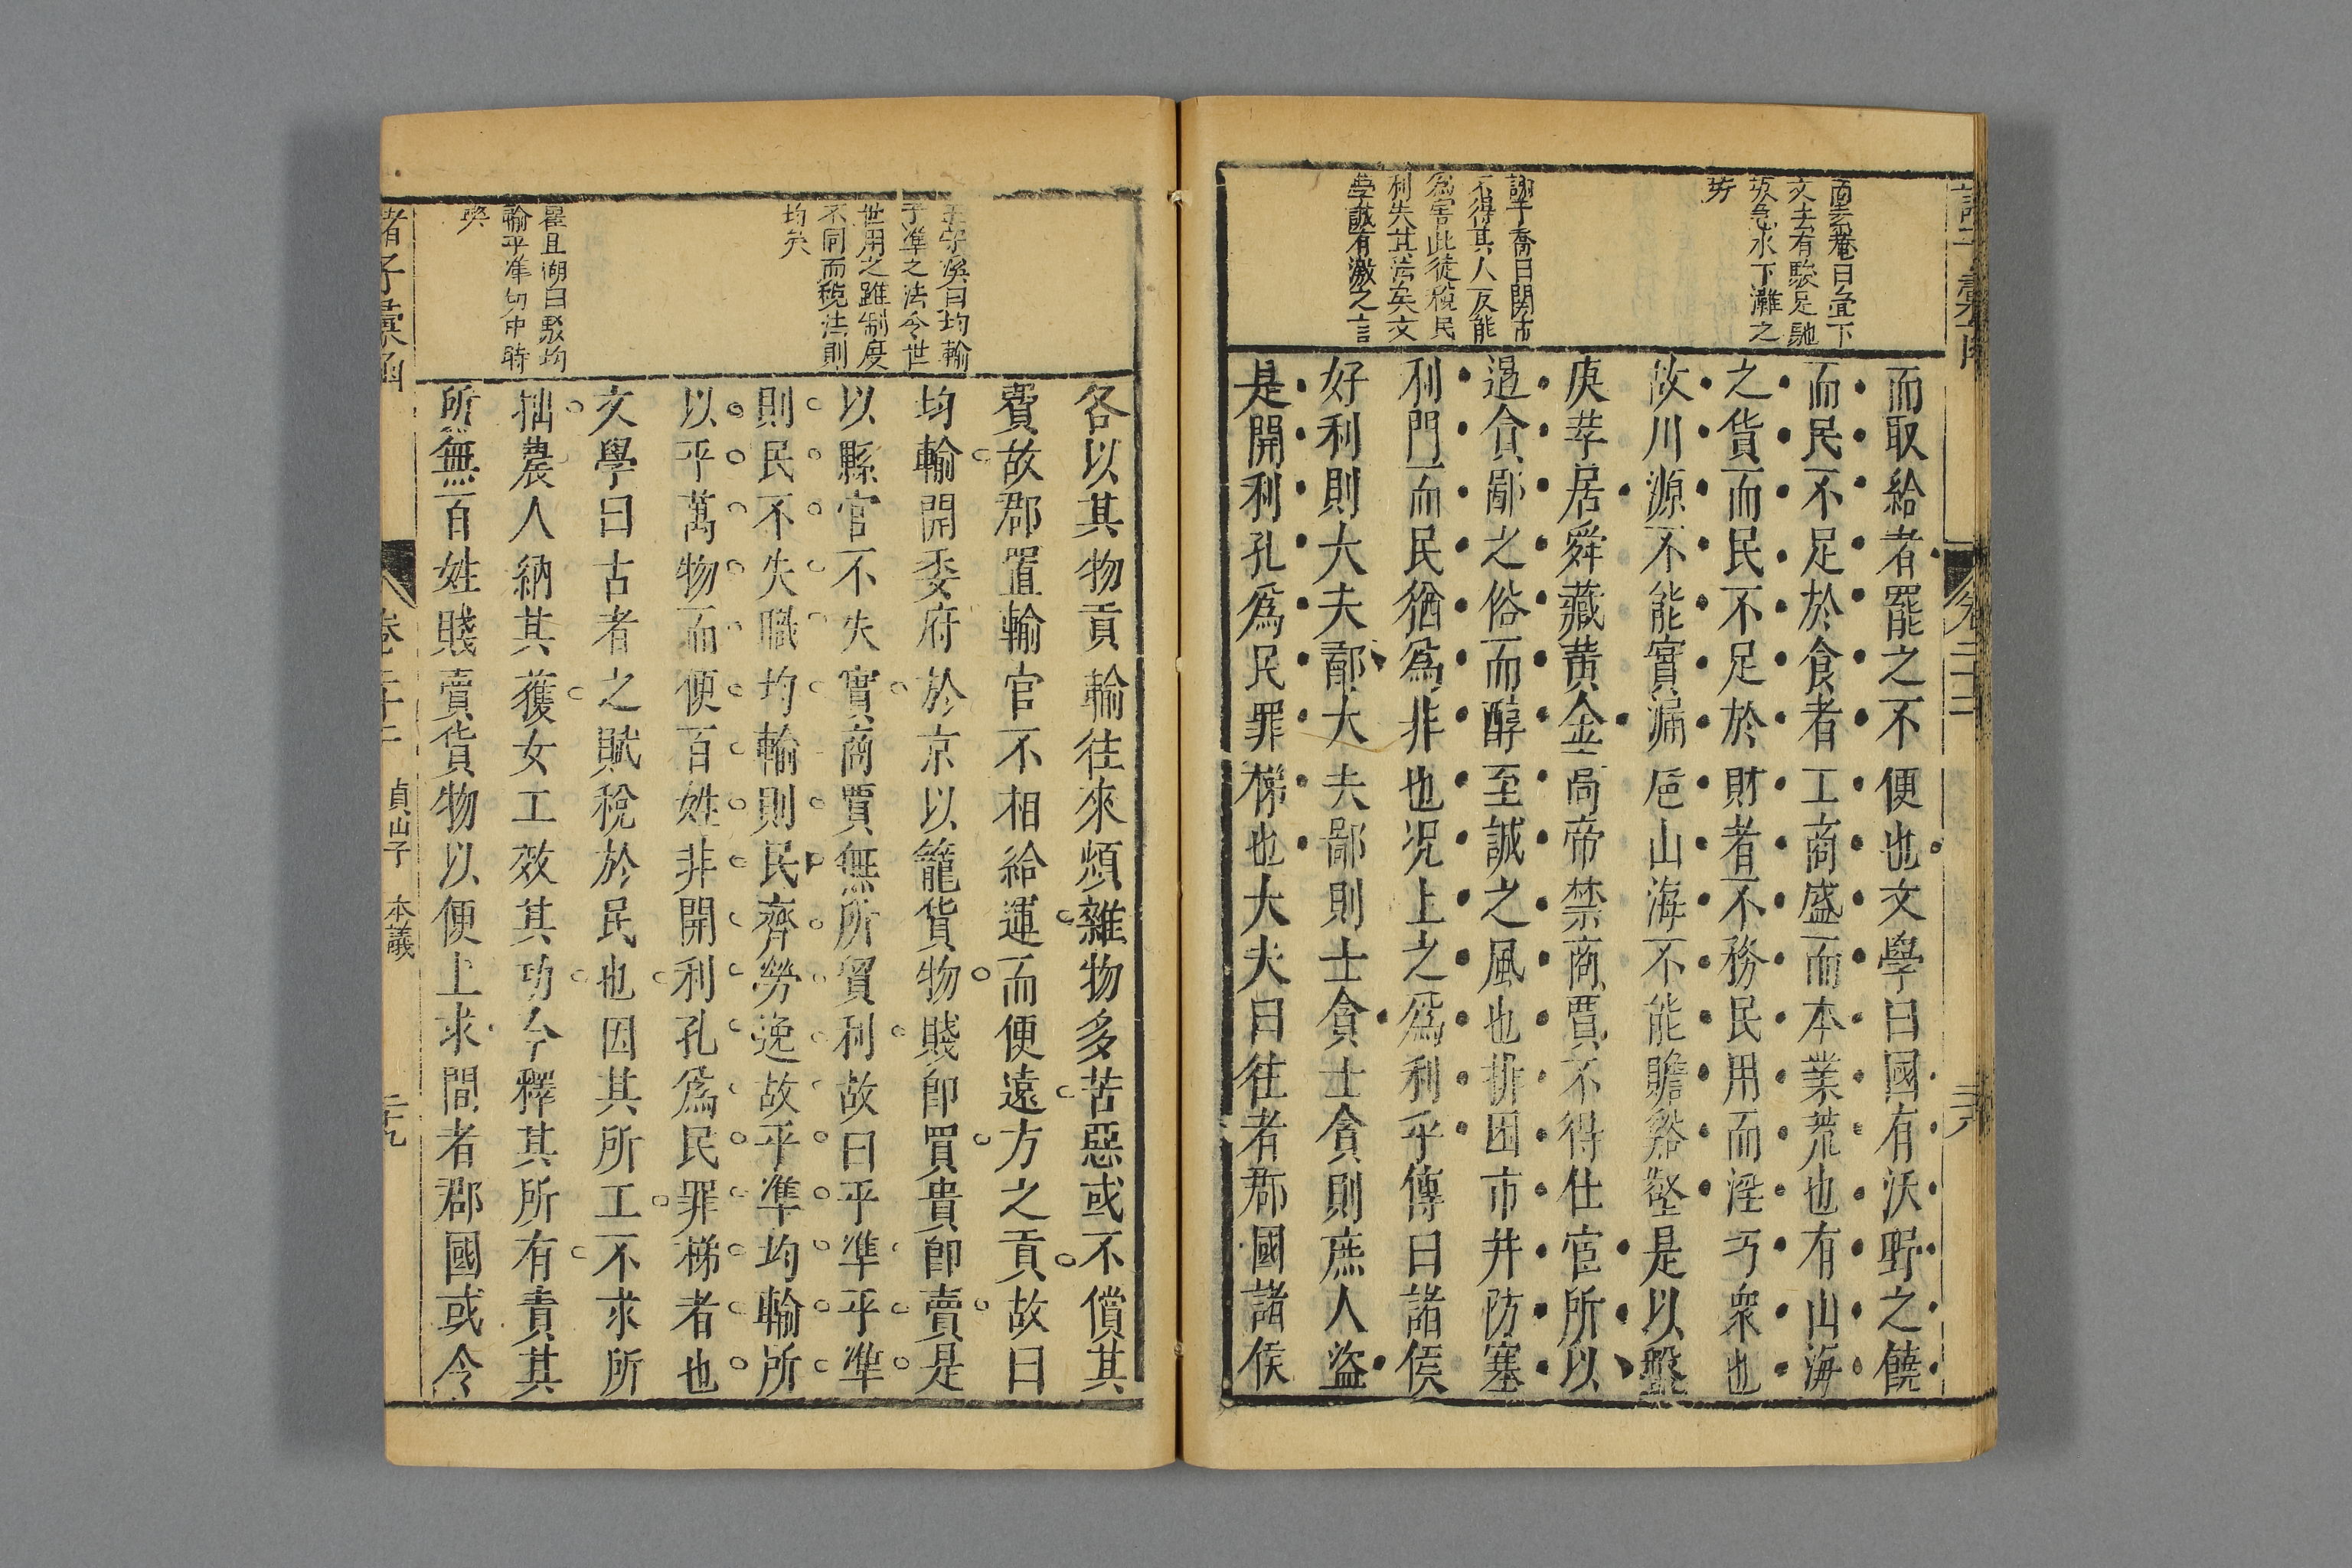 而取給者罷之不便也文學曰國有沃野之饒
而民不足於食者工商盛而本業荒也有山海
之貨而民不足於財者不務民用而淫巧衆也
故川源不能實漏巵山海不能贍谿壑是以盤
庚莘居舜藏黄金高帝禁商賈不得仕宦所以
遏貪鄙之俗而醇至誠之風也排困市井防塞
利門而民猶為非也况上之為利乎傳曰諸侯
好利則大夫鄙大夫鄙則士貪士貪則庶人盜
是開利孔為民罪梯也大夫曰往者郡國諸侯
曰宜下
文去有駿足馳
坂急水下灘之
勢
謝子喬曰關市
不得其人反能
為害此徒稅民
利失其法矣文
學誠有激之言
各以其物貢輸往來煩雜物多苦惡或不償其
費故郡置輸官不相給運而便遠方之貢故曰
均輸開委府於京以籠貨物賤即買貴即賣是
以縣官不失實商賈無所貿利故曰平準平準
則民不失職均輸則民齊勞逸故平準均輸所
以平萬物而便百姓非開利孔為民罪梯者也
文學曰古者之賦稅於民也因其所工不求所
拙農人納其獲女工效其功今釋其所有責其
所無百姓賤賣貨物以便上求間者郡國或令
曰均輸
平準之法今世
世用之雖制度
不同而稅法則
均矣
瞿且湖曰駁均
輸平準切中時
弊
諸子彙函
卷二十二
貞山子 本議
二十九